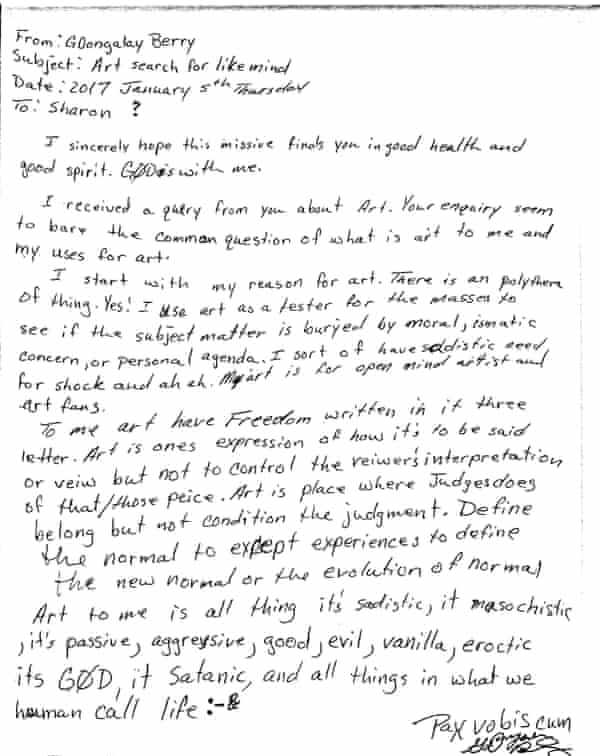 From: GDongalay Berry
Subject: Art search for like mind
Date: 2017 January 5th Thursday
To: Sharon ?
I sincerely hope this missive finds you in good health and
good spirit. GØD is with me.
I received a query from you about Art. Your enquiry seem
to bare the common question of what is art to me and
my uses for art.
I start with my reason for art. There is an polythera
of thing. Yes! I use art as a tester for the masses to
see if the subject matter is buried by moral, ismatic
concern, or personal agenda. I sort of have sadistic need
for shock and ah eh. My art is for open mind artist and
art fans.
To me art have Freedom written in it three
letter. Art is ones expression of how it's to be said
or veiw but not to control the reiwer's interpretation
of that/those peice. Art is place where Judges does
belong but not condition the judgment. Define
the normal to except experiences to define
the new normal or the evolution of normal
Art to me is all thing it's sadistic, it masochistic
, it's passive, aggressive, good, evil, vanilla, eroctic
its GØD, it Satanic, and all things in what we
human call life :-&
Pax vobiscum